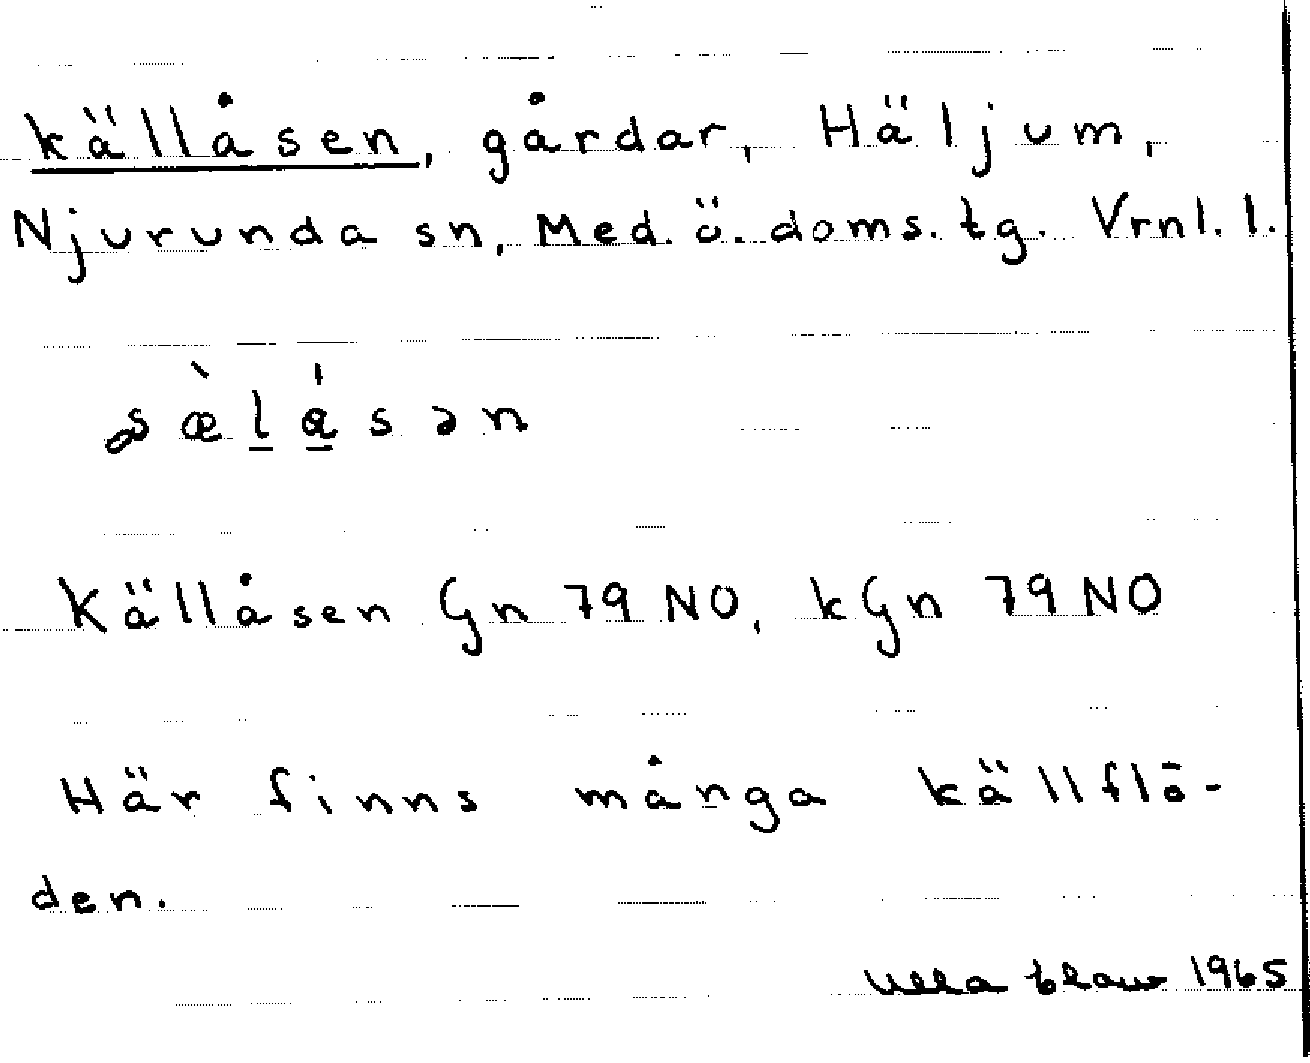 Källåsen, gårdar, Häljum,
Njurunda sn, Med. ö. doms. tg. Vrnl. l.
Källåsen Gn 79 NO, kGn 79 NO
Här finns många källflö-
den.
Ulla 1965